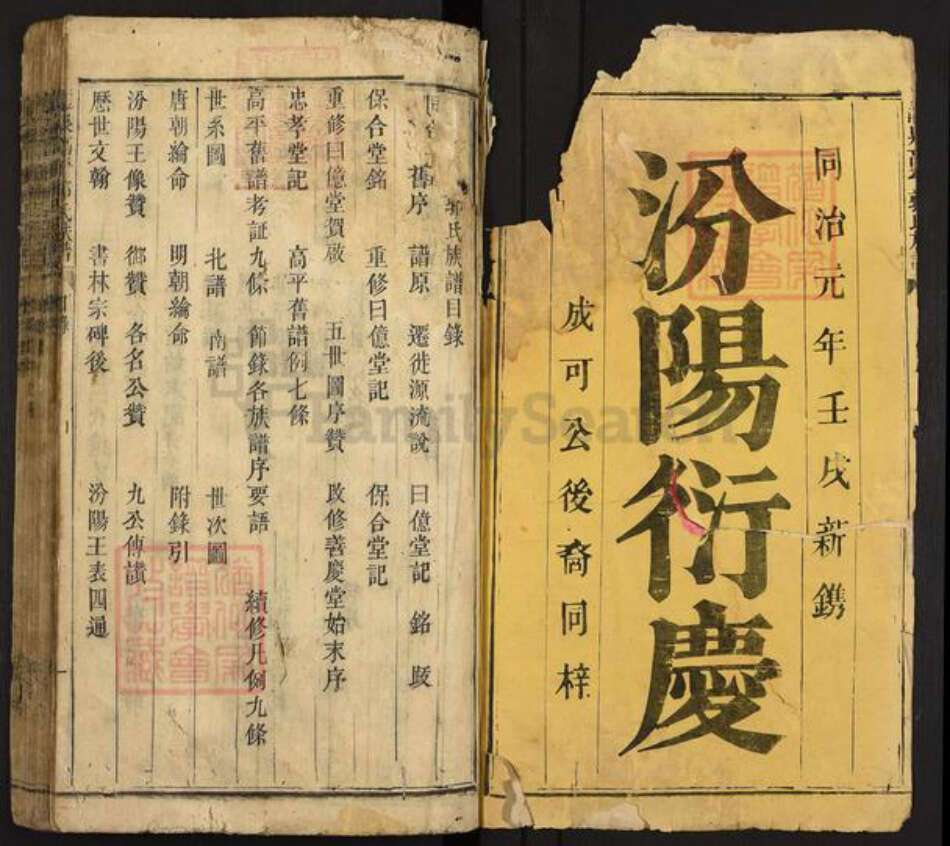 同治元年壬戌新鐫
汾陽衍慶
成可公後裔同梓
氏族譜目錄
舊序 譜原 遷徙源流說 曰億堂記 銘 跋
保合堂銘 重修曰億堂記 保合堂記
重修曰億堂賀啟 五世圖序贊 改修善慶堂始末序
忠孝堂記 高平舊譜例七條
高平舊譜考証九條 節錄各族譜序要語 續修凡例九條
世系圖 北譜 南譜 世次圖
唐朝綸命 明朝綸命 附錄引
汾陽王像贊 御贊 各名公贊 九公傳讀
歷世文翰 書林宗碑後 汾陽王表四通
FamilySearch